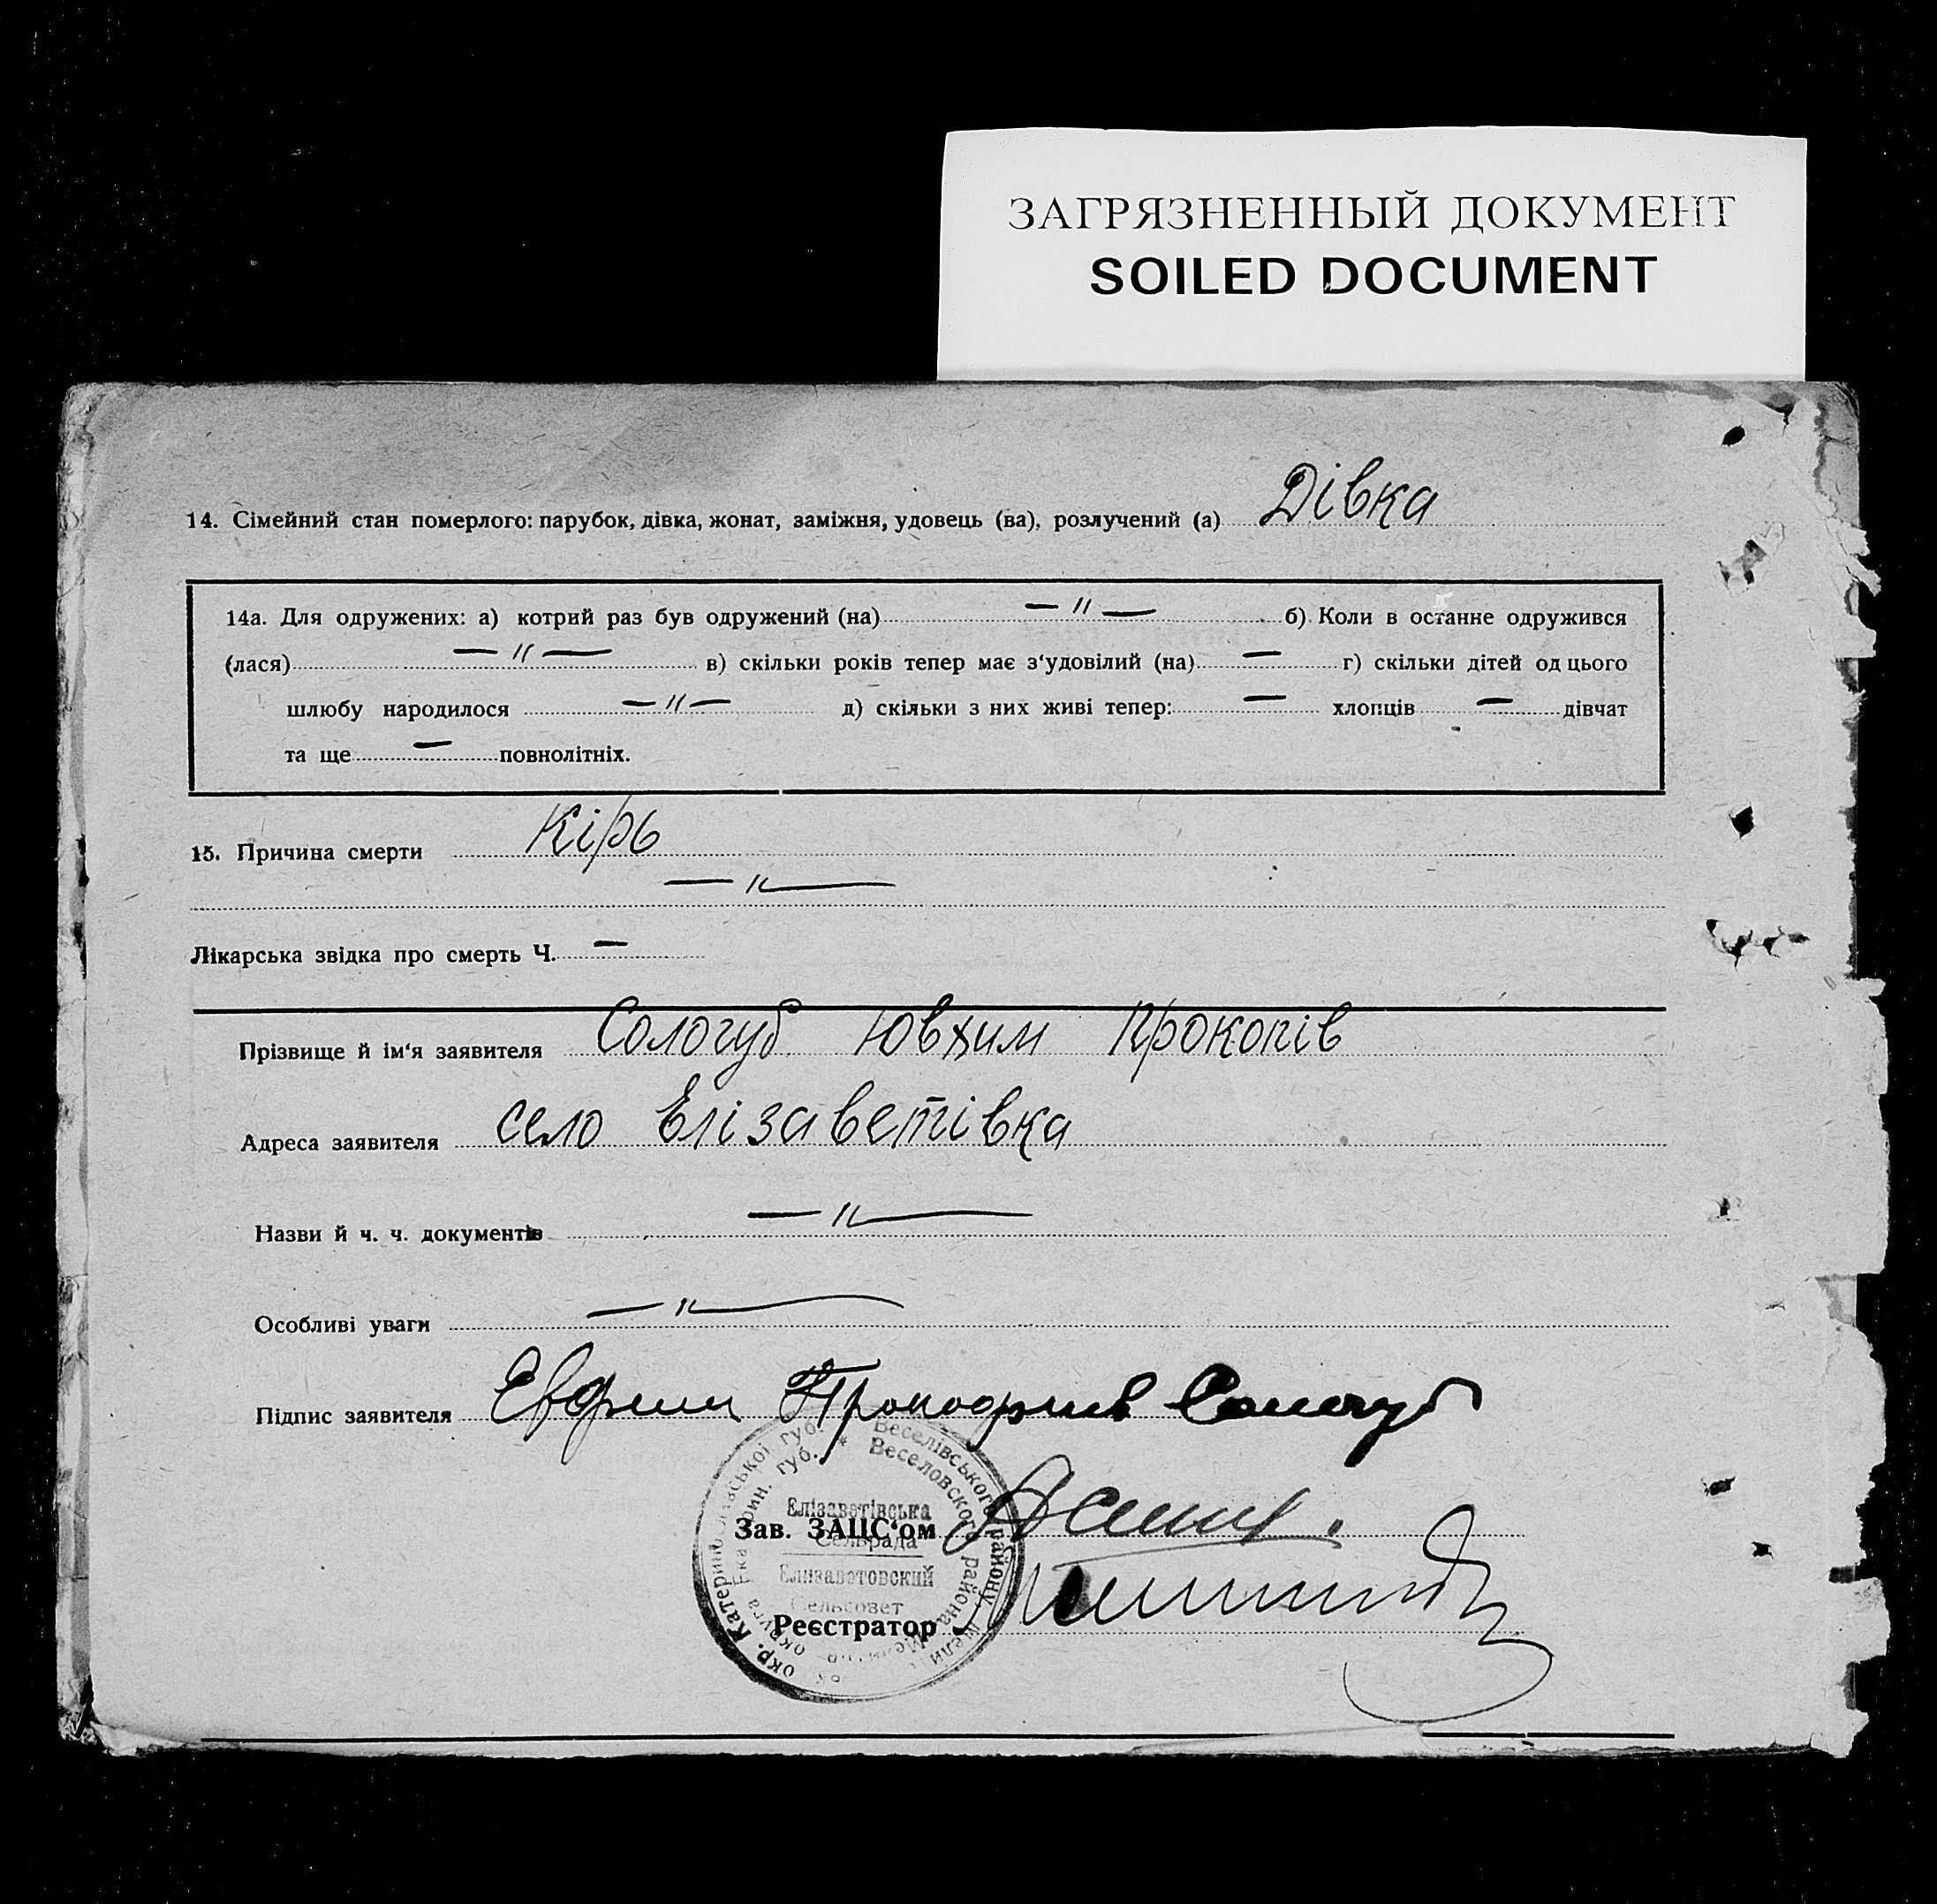 ЗАГРЯЗНЕННЫЙ ДОКУМЕНТ
SOILED DOCUMENT
14. Сімейний стан померлого: парубок, дівка, жонат, заміжня, удовець (ва), розлучений (а) Дівка
14а. Для одружених: а) котрий раз був одружений (на) — " — б) Коли в останне одружився
(лася) — " — в) скільки років тепер має з'удовілий (на) — г) скільки дітей од цього
шлюбу народилося — " — д) скільки з них живі тепер: — хлопців — дівчат
та ще — повнолітніх.
15. Причина смерти Кірь
— " —
Лікарська звідка про смерть Ч. —
Прізвище й ім'я заявителя Сологуб Ювхим Прокопів
Адреса заявителя село Елізаветівка
Назви й ч. ч. документів — " —
Особливі уваги — " —
Підпис заявителя Ефим Прокофиев Сологуб
Веселівського району
Веселовского района
Елізаветівська
Зав. ЗАЦС'ом
Сельрада
Елизаветовский
Сельсовет
Реєстратор